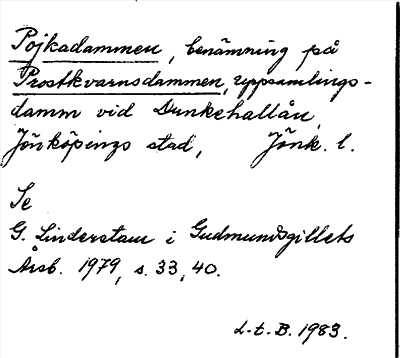 Pojkadammen, benämning på
Prostkvarnsdammen, uppsamlings-
damm vid Dunkehallån,
Jönköpings stad, Jönk. l.
Se
G. Linderstam i Gudmundsgillets
Årsb. 1979, s. 33, 40.
L.t.B. 1983.